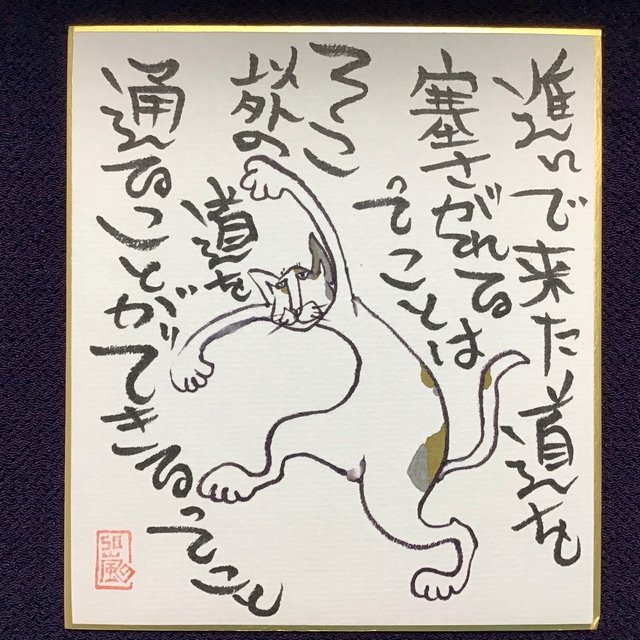 進んで来た道を
塞さがれてる
ってことは
そこ
以外の
道を
通れることができるってこと